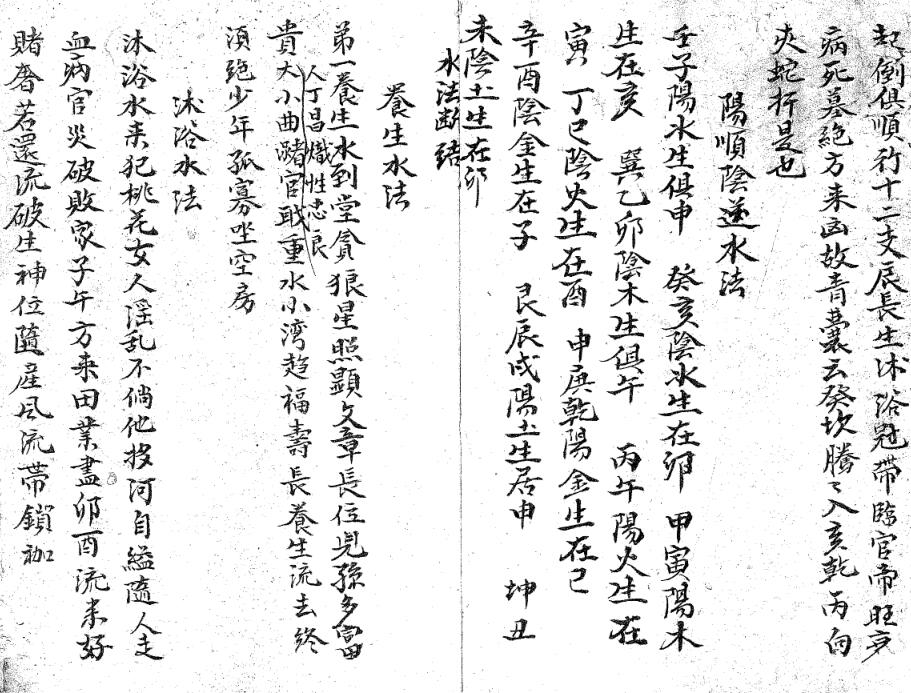 起倒俱順行十二支辰長生沐浴冠帶臨官帝旺衰
病死墓絕方来凶故青囊云癸坎騰〻入亥乾丙向
夾蛇行是也
陽順陰逆水法
壬子陽水生俱申　癸亥陰水生在卯　甲寅陽木
生在亥　巽乙卯陰木生俱午　丙午陽火生在
寅　丁巳陰火生在酉　申庚乾陽金生在巳
辛酉陰金生在子　艮辰戌陽土生居申　坤丑
未陰土生在卯
水法断结
養生水法
第一養生水到堂貪狼星照顯文章長位児孫多富
人丁昌熾性忠良
貴大小曲瀦官職重水小湾趋福壽長養生流去終
須絶少年孤寡坐空房
沐浴水法
沐浴水来犯桃花女人淫乱不倘他投河自縊隨人走
血病官災破敗家子午方来田業盡卯酉流来好
賭奢若還流破生神位隨産風流帶鎖枷